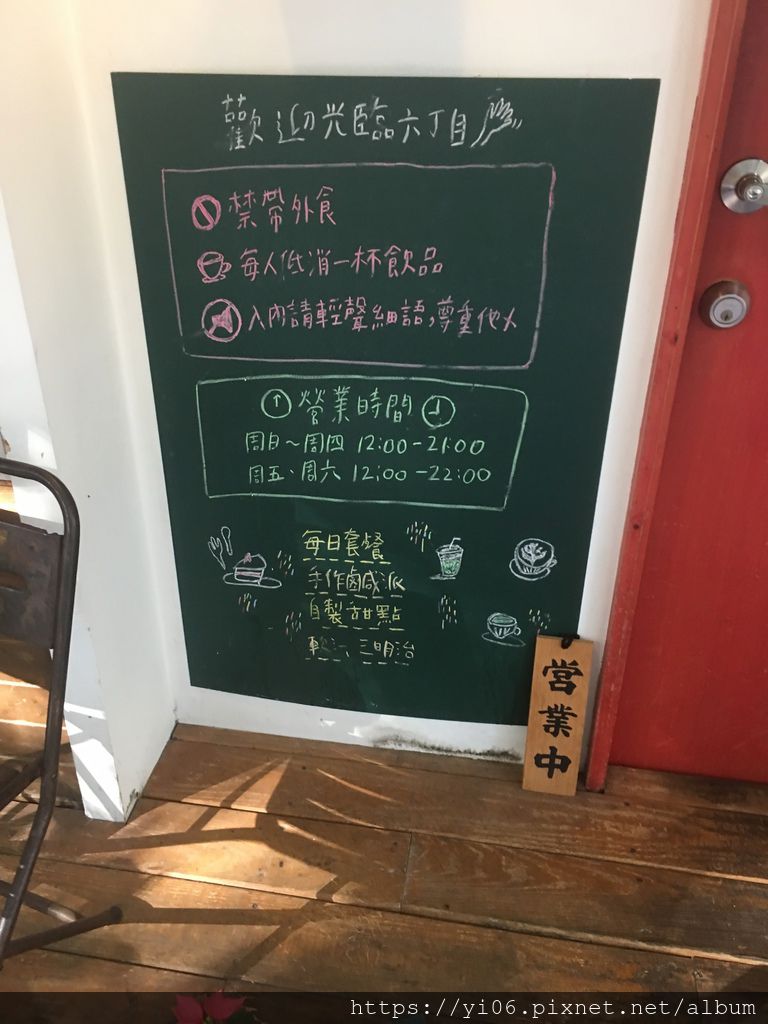 歡迎光臨六丁目
禁帶外食
每人低消一杯飲品
入內請輕聲細語,尊重他人
營業時間
周日～周四 12:00-21:00
周五、周六 12:00-22:00
每日套餐
手作鹹派
自製甜點
三明治
営業中
https://yi06.pixnet.net/album